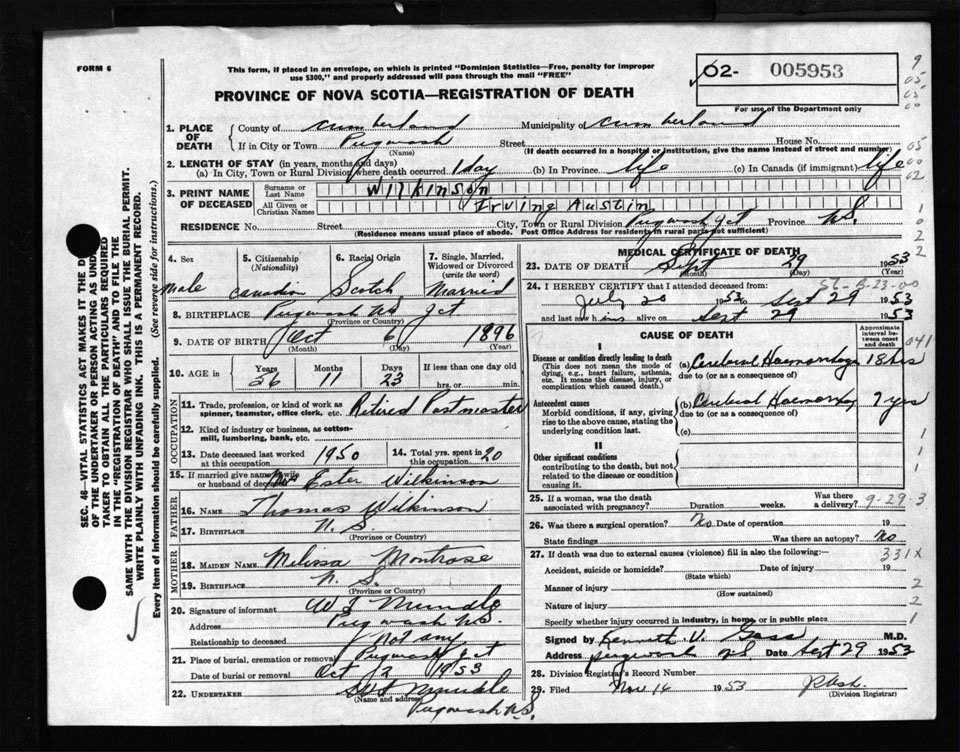 FORM 6
This form, if placed in an envelope, on which is printed "Dominion Statistics—Free, penalty for improper
use $300," and properly addressed will pass through the mail "FREE"
02- 005953
For use of the Department only
PROVINCE OF NOVA SCOTIA—REGISTRATION OF DEATH
1. PLACE OF DEATH { County of Cumberland Municipality of Cumberland
If in City or Town Pugwash Street House No.
(Name) (If death occurred in a hospital or institution, give the name instead of street and number)
2. LENGTH OF STAY (in years, months and days)
(a) In City, Town or Rural Division where death occurred 1 day (b) In Province life (c) In Canada (if immigrant) life
3. PRINT NAME OF DECEASED { Surname or Last Name Wilkinson
All Given or Christian Names Irving Austin
RESIDENCE No. Street City, Town or Rural Division Pugwash Jct Province N.S.
(Residence means usual place of abode. Post Office Address for residents in rural parts not sufficient)
4. Sex male
5. Citizenship (Nationality) Canadian
6. Racial Origin Scotch
7. Single, Married, Widowed or Divorced (write the word) Married
8. BIRTHPLACE Pugwash NS Jct
(Province or Country)
9. DATE OF BIRTH Oct 6 1896
(Month) (Day) (Year)
10. AGE in { Years 56 Months 11 Days 23 If less than one day
hrs. or min.
OCCUPATION
11. Trade, profession, or kind of work as
spinner, teamster, office clerk, etc. Retired Postmaster
12. Kind of industry or business, as cotton-
mill, lumbering, bank, etc.
13. Date deceased last worked at this occupation 1950
14. Total yrs. spent in this occupation 20
15. If married give name of wife or husband of deceased Mrs Ester Wilkinson
FATHER
16. NAME Thomas Wilkinson
17. BIRTHPLACE N. S.
(Province or Country)
MOTHER
18. MAIDEN NAME Melissa Montrose
19. BIRTHPLACE N. S.
(Province or Country)
20. Signature of informant
Address Pugwash N.S.
Relationship to deceased Not any
21. Place of burial, cremation or removal Pugwash Jct
Date of burial or removal Oct 2 1953
22. UNDERTAKER
(Name and address)
Pugwash N.S.
MEDICAL CERTIFICATE OF DEATH
23. DATE OF DEATH Sept 29 1953
(Month) (Day) (Year)
24. I HEREBY CERTIFY that I attended deceased from:
July 20 1953 to Sept 29 1953
and last saw him alive on Sept 29 1953
CAUSE OF DEATH
Approximate interval between onset and death
I
Disease or condition directly leading to death
(This does not mean the mode of dying, e.g., heart failure, asthenia, etc. It means the disease, injury, or complication which caused death.)
(a) Cerebral Haemorrhage 18 hrs
due to (or as a consequence of)
Antecedent causes
Morbid conditions, if any, giving rise to the above cause, stating the underlying condition last.
(b) Cerebral Haemorrhage
due to (or as a consequence of)
(c)
II
Other significant conditions
contributing to the death, but not related to the disease or condition causing it
25. If a woman, was the death associated with pregnancy? Duration weeks. Was there a delivery? 9-29-3
26. Was there a surgical operation? No Date of operation 19
State findings Was there an autopsy? No
27. If death was due to external causes (violence) fill in also the following:— 331X
Accident, suicide or homicide? Date of injury 19
(State which)
Manner of injury
(How sustained)
Nature of injury
Specify whether injury occurred in industry, in home, or in public place
Signed by Kenneth V. Gass M.D.
Address Pugwash N.S Date Sept 29 1953
28. Division Registrar's Record Number
29. Filed Nov 14 1953
(Division Registrar)
SEC. 46—VITAL STATISTICS ACT MAKES IT THE
OF THE UNDERTAKER OR PERSON ACTING AS
TAKER TO OBTAIN ALL THE PARTICULARS REQUIRED
IN THE "REGISTRATION OF DEATH" AND TO FILE THE
SAME WITH THE DIVISION REGISTRAR WHO SHALL ISSUE THE BURIAL PERMIT.
WRITE PLAINLY WITH UNFADING INK. THIS IS A PERMANENT RECORD.
Every item of information should be carefully supplied. (See reverse side for instructions.)